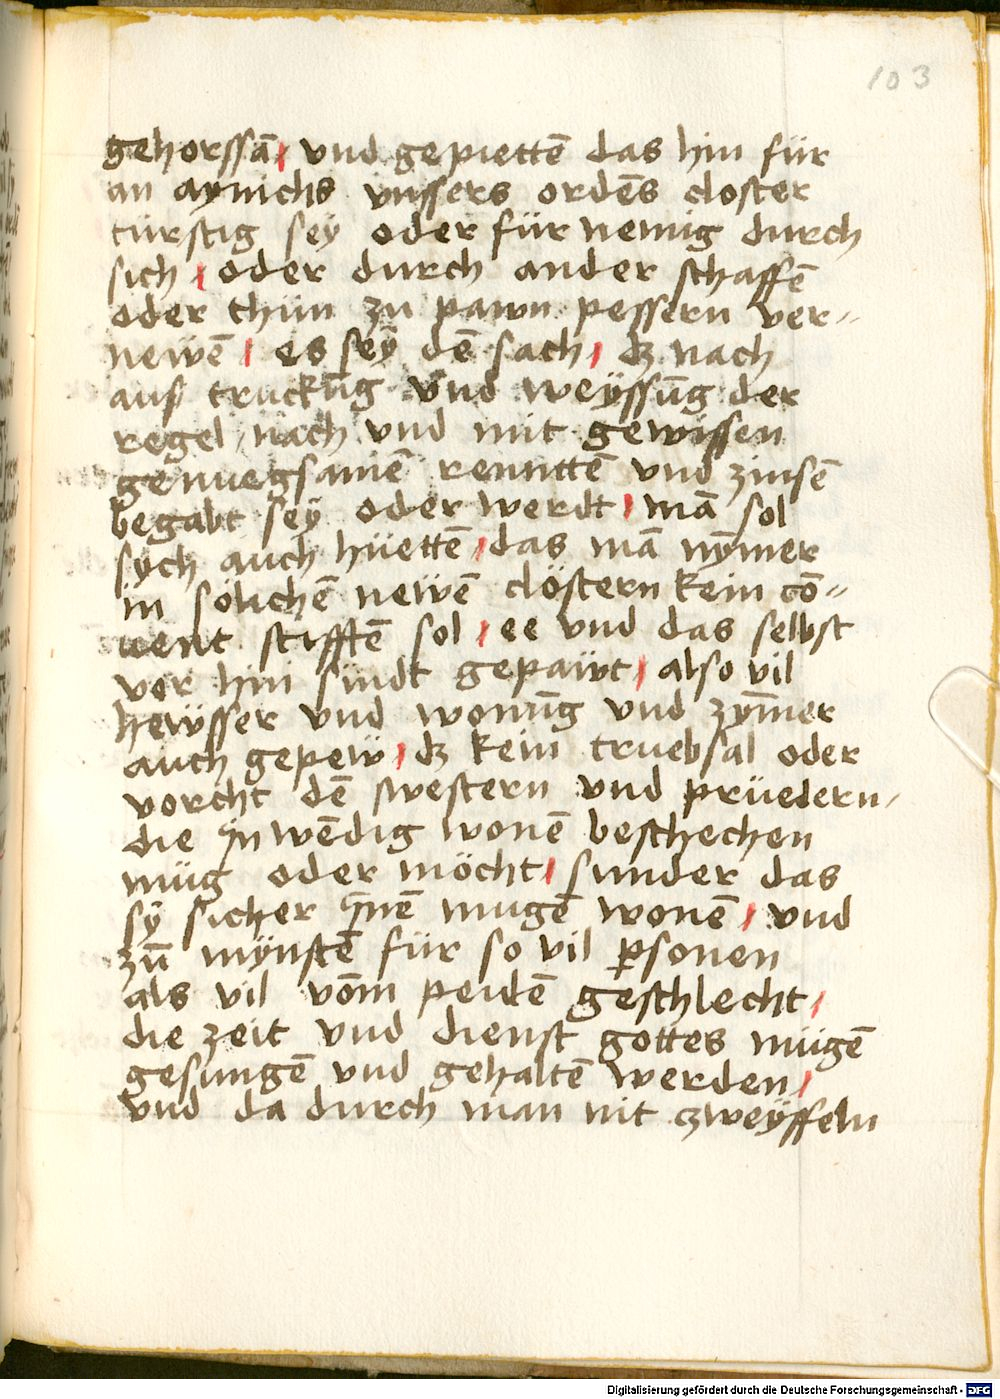 103
gehorssā / vnd gepiettē das hin für
an aynichs vnssers ordēs closter
türstig sey oder für nemig durch
sich / oder durch ander schaffē
oder thün zu pawn pessern ver-
newē / es sey dē sach / dz nach
auß truckūg vnd weÿssūg der
regel nach vnd mit gewissen
genuegsamē renntē vnd zinsē
begabt sey oder werdt / mā sol
sych auch hüettē / das mā nȳmer
in sölichē newē clöstern kein cō-
uent stifftē sol / ee vnd das selbst
vor hin sindt gepawt / also vil
hewsser vnd wonūg vnd zȳmer
auch gepew / dz kein truebsal oder
vorcht dē swestern vnd prüedern
die īnwēdig wonē beschechen
müg oder möcht / sunder das
sy sicher īnē mugē wonē / vnd
zū mÿnstē für so vil ꝑsonen
als vil vōm peidē geschlecht /
die zeit vnd dienst gottes mügē
gesungē vnd gehaltē werden /
vnd da durch man nit zweÿffeln
Digitalisierung gefördert durch die Deutsche Forschungsgemeinschaft - DFG